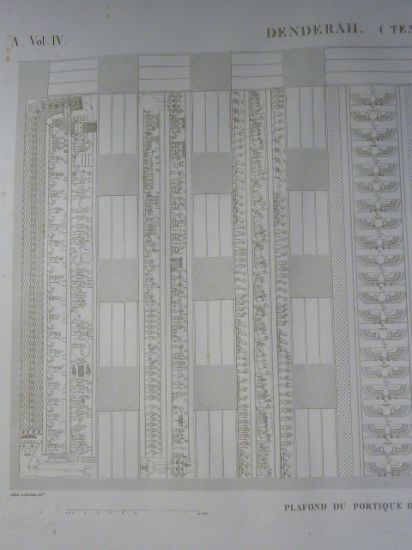 A. Vol. IV.
DENDERAH. (TEN
PLAFOND DU PORTIQUE